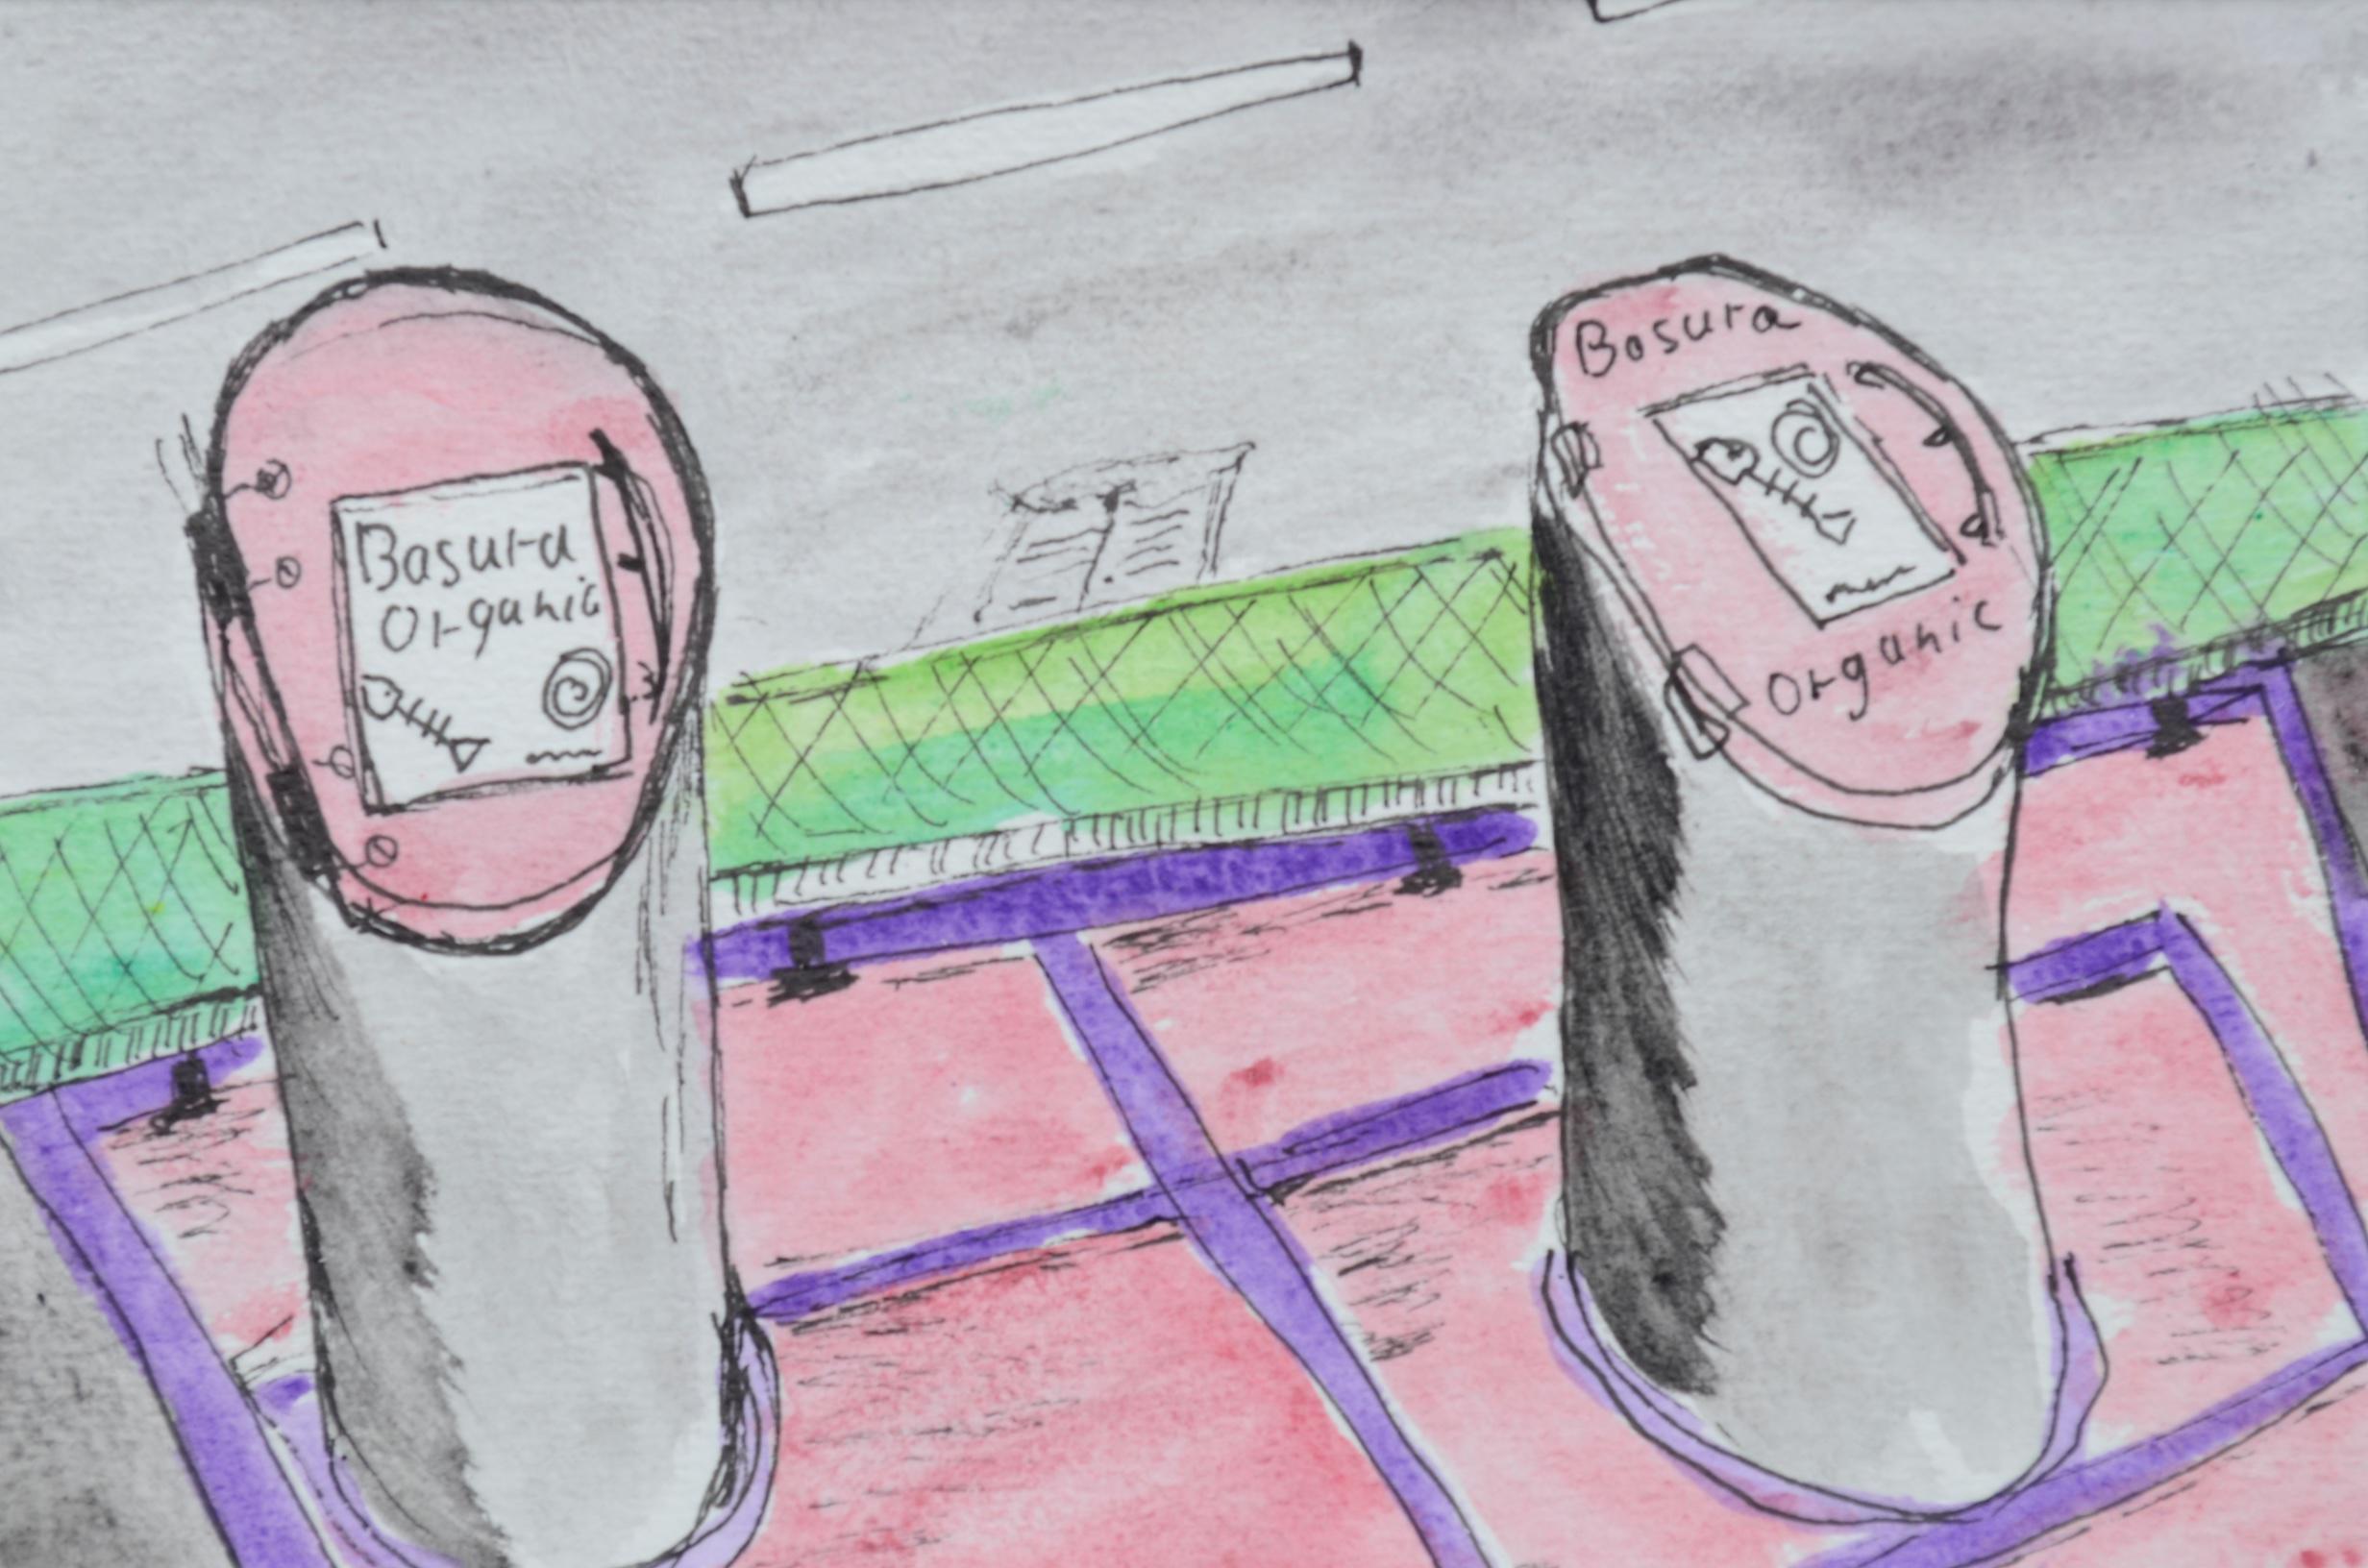 Basura
Organic
Basura
Organic